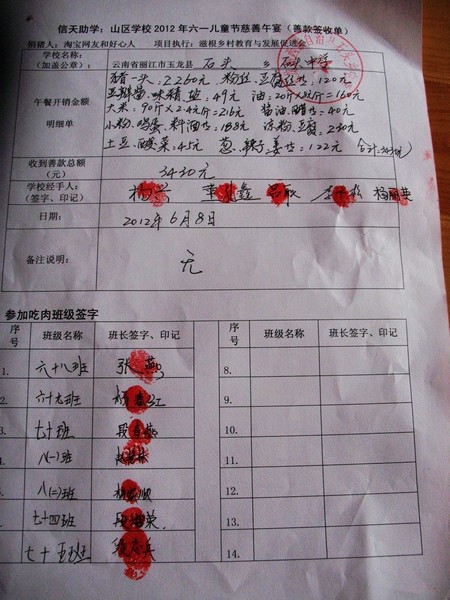 信天助学：山区学校 2012 年六一儿童节慈善午宴（善款签收单）
捐猪人：淘宝网友和好心人 项目执行：滋根乡村教育与发展促进会
学校名称：
（加盖公章）： 云南省丽江市玉龙县 石头 乡 石头中学
猪一头：2260元 粉丝、豆腐丝等：120元
豆瓣酱、味精、盐：49元 油：20斤×8元/斤=160元
午餐开销金额 大米：90斤×2.4元/斤=216 酱油、醋等：40元
明细单 小粉、鸡蛋、料酒等：188元 凉粉、豆腐：230元
土豆、酸菜：45元 葱、辣子、姜等：122元 合计：3430元
收到善款总额
（元） 3430元
学校经手人：
（签字、印记） 杨兴 杨丽英
日期： 2012年6月8日
备注说明： 无
参加吃肉班级签字
序号 班级名称 班长签字、印记 序号 班级名称 班长签字、印记
1. 六十八班 张燕 8.
2. 六十九班 9.
3. 七十班 10.
4. 八(一)班 11.
5. 八(二)班 12.
6. 七十四班 13.
7. 七十五班 14.